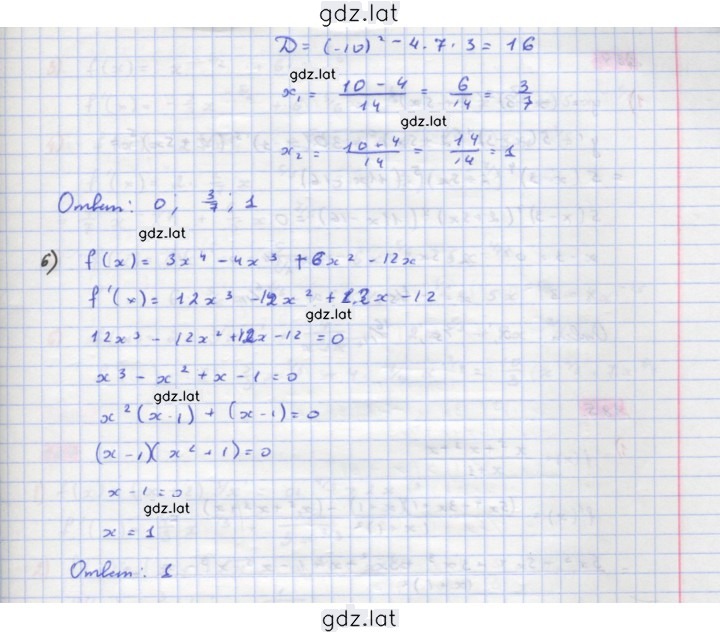 gdz.lat
D = (-10)² - 4 · 7 · 3 = 16
gdz.lat
x₁ = (10 - 4)/14 = 6/14 = 3/7
gdz.lat
x₂ = (10 + 4)/14 = 14/14 = 1
Ответ: 0; 3/7; 1
gdz.lat
6) f(x) = 3x⁴ - 4x³ + 6x² - 12x
f'(x) = 12x³ - 12x² + 12x - 12
gdz.lat
12x³ - 12x² + 12x - 12 = 0
x³ - x² + x - 1 = 0
gdz.lat
x²(x-1) + (x-1) = 0
(x-1)(x²+1) = 0
x - 1 = 0
gdz.lat
x = 1
Ответ: 1
gdz.lat